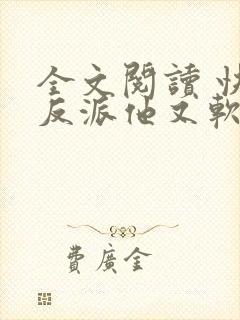 全文閱讀 快
反派他又軟
費廣金